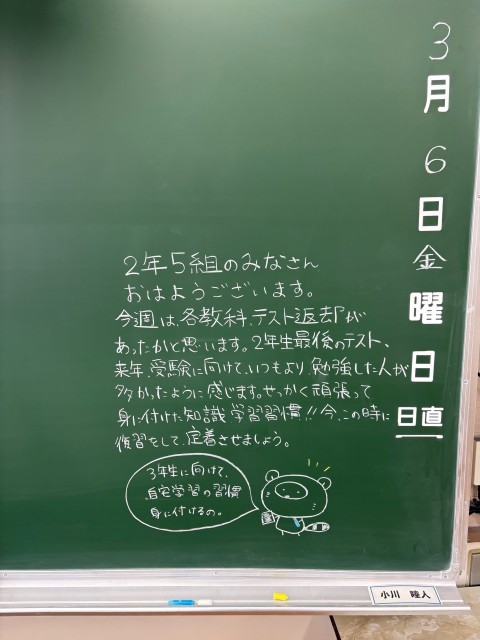 3月6日金曜日
日直
2年5組のみなさん
おはようございます。
今週は、各教科、テスト返却が
あったかと思います。2年生最後のテスト、
来年、受験に向けて、いつもより、勉強した人が
多かったように感じます。せっかく頑張って
身に付けた知識、学習習慣!!今、この時に
復習をして、定着させましょう。
3年生に向けて、
自宅学習の習慣
身に付けるの。
小川 睦人